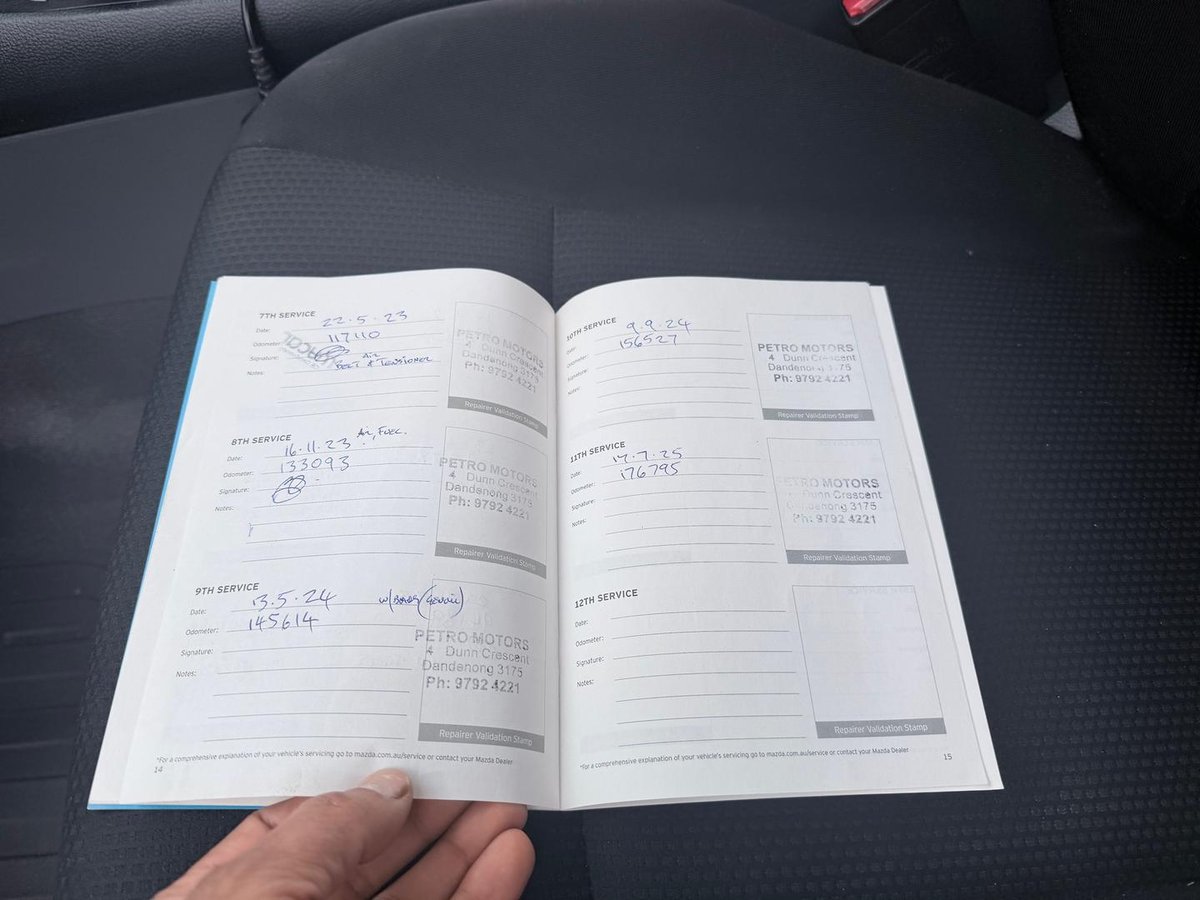 7TH SERVICE
Date: 22.5.23
Odometer: 117110
Signature:
Air
Notes: BELT & TENSIONER
PETRO MOTORS
4 Dunn Crescent
Dandenong 3175
Ph: 9792 4221
Repairer Validation Stamp
8TH SERVICE
Air, Fuel.
Date: 16.11.23
Odometer: 133093
Signature:
Notes:
PETRO MOTORS
4 Dunn Crescent
Dandenong 3175
Ph: 9792 4221
Repairer Validation Stamp
9TH SERVICE
Date: 13.5.24
Odometer: 145614
Signature:
Notes:
PETRO MOTORS
4 Dunn Crescent
Dandenong 3175
Ph: 9792 4221
Repairer Validation Stamp
*For a comprehensive explanation of your vehicle's servicing go to mazda.com.au/service or contact your Mazda Dealer
14
10TH SERVICE
Date: 9.9.24
Odometer: 156527
Signature:
Notes:
PETRO MOTORS
4 Dunn Crescent
Dandenong 3175
Ph: 9792 4221
Repairer Validation Stamp
11TH SERVICE
Date: 17.7.25
Odometer: 176795
Signature:
Notes:
PETRO MOTORS
Dunn Crescent
Dandenong 3175
Ph: 9792 4221
Repairer Validation Stamp
12TH SERVICE
Date:
Odometer:
Signature:
Notes:
Repairer Validation Stamp
*For a comprehensive explanation of your vehicle's servicing go to mazda.com.au/service or contact your Mazda Dealer
15